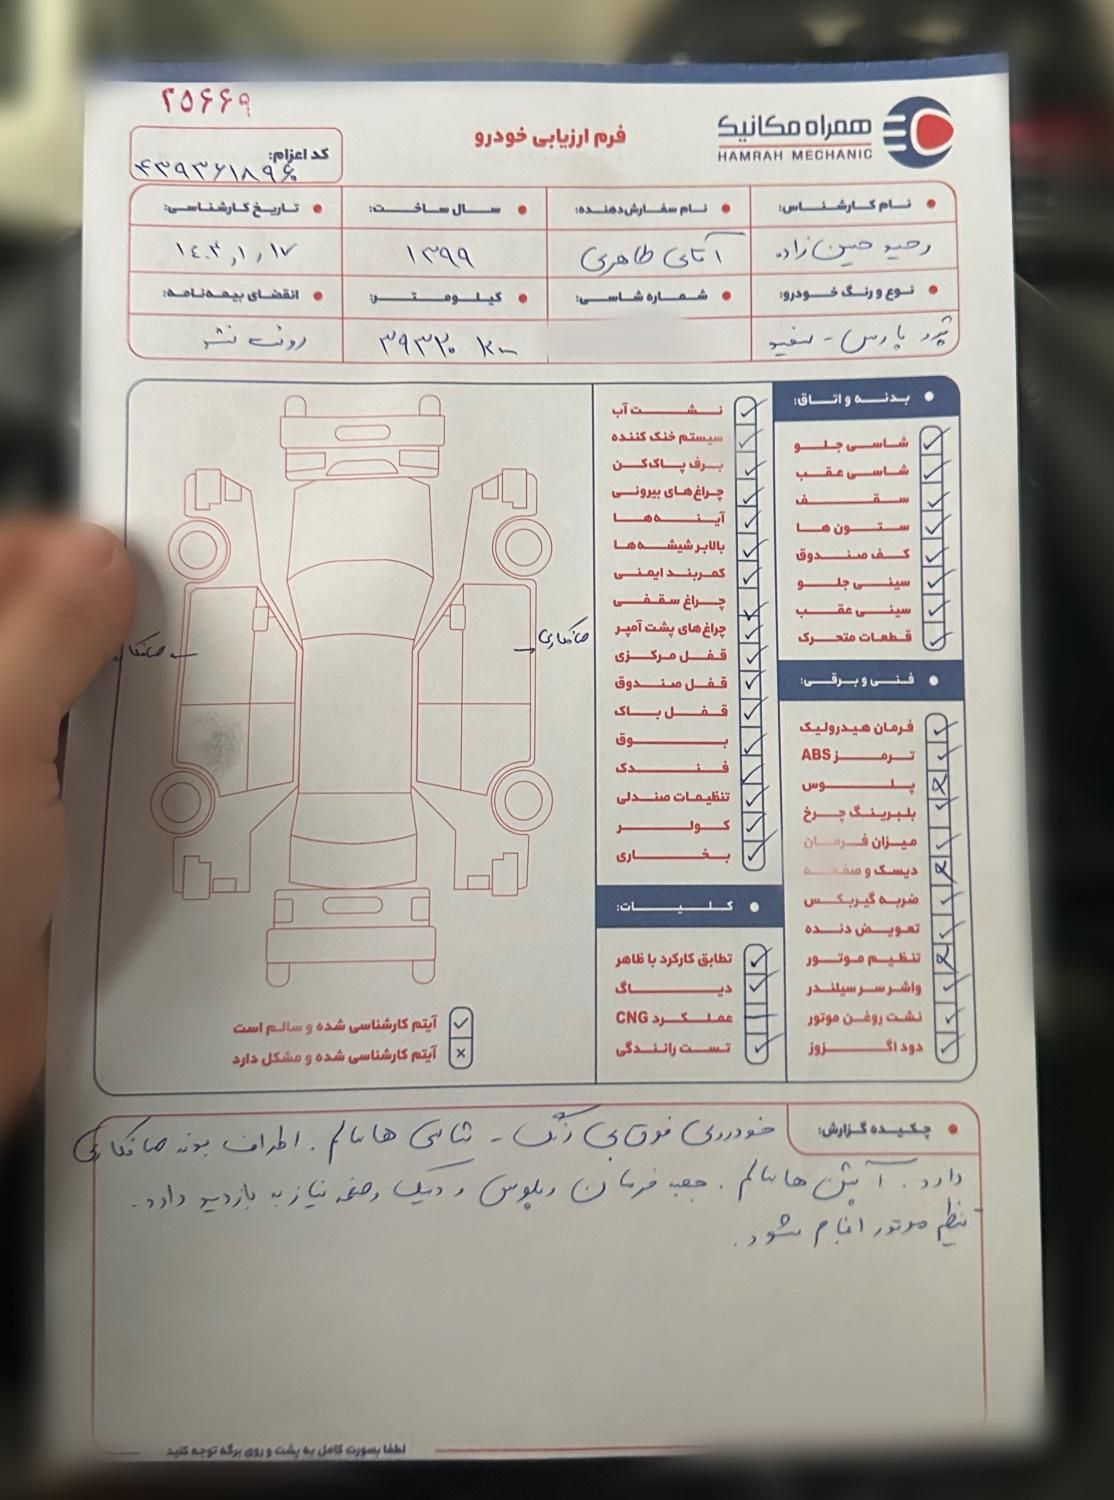 ۲۵۶۶۹
همراه مکانیک
HAMRAH MECHANIC
فرم ارزیابی خودرو
کد اعزام:
۴۳۹۳۶۱۸۹۶
نام کارشناس:
نام سفارش‌دهنده:
سال ساخت:
تاریخ کارشناسی:
وحید حسین زاده
آقای طاهری
۱۳۹۹
۱۴۰۳,۱,۱۷
نوع و رنگ خودرو:
شماره شاسی:
کیلومتر:
انقضای بیمه‌نامه:
پژو پارس - سفید
km ۳۹۳۲۰
رویت نشد
بدنه و اتاق:
شاسی جلو
شاسی عقب
سقف
ستون ها
کف صندوق
سینی جلو
سینی عقب
قطعات متحرک
فنی و برقی:
فرمان هیدرولیک
ترمز ABS
پلوس
بلبرینگ چرخ
میزان فرمان
دیسک و صفحه
ضربه گیربکس
تعویض دنده
تنظیم موتور
واشر سر سیلندر
نشت روغن موتور
دود اگزوز
نشت آب
سیستم خنک کننده
برف پاک‌کن
چراغ‌های بیرونی
آینه‌ها
بالابر شیشه‌ها
کمربند ایمنی
چراغ سقفی
چراغ‌های پشت آمپر
قفل مرکزی
قفل صندوق
قفل باک
بوق
فندک
تنظیمات صندلی
کولر
بخاری
کلیات:
تطابق کارکرد با ظاهر
دیاگ
عملکرد CNG
تست رانندگی
صافکاری
صافکا
آیتم کارشناسی شده و سالم است
آیتم کارشناسی شده و مشکل دارد
چکیده گزارش:
خودروی فوق بی رنگ - شاسی ها سالم . اطراف بدنه صافکاری
دارد . آپشن ها سالم . جعبه فرمان و پلوس و دیسک و صفحه نیاز به بازدید دارد .
تنظیم موتور انجام شود .
لطفا بصورت کامل به پشت و روی برگه توجه کنید